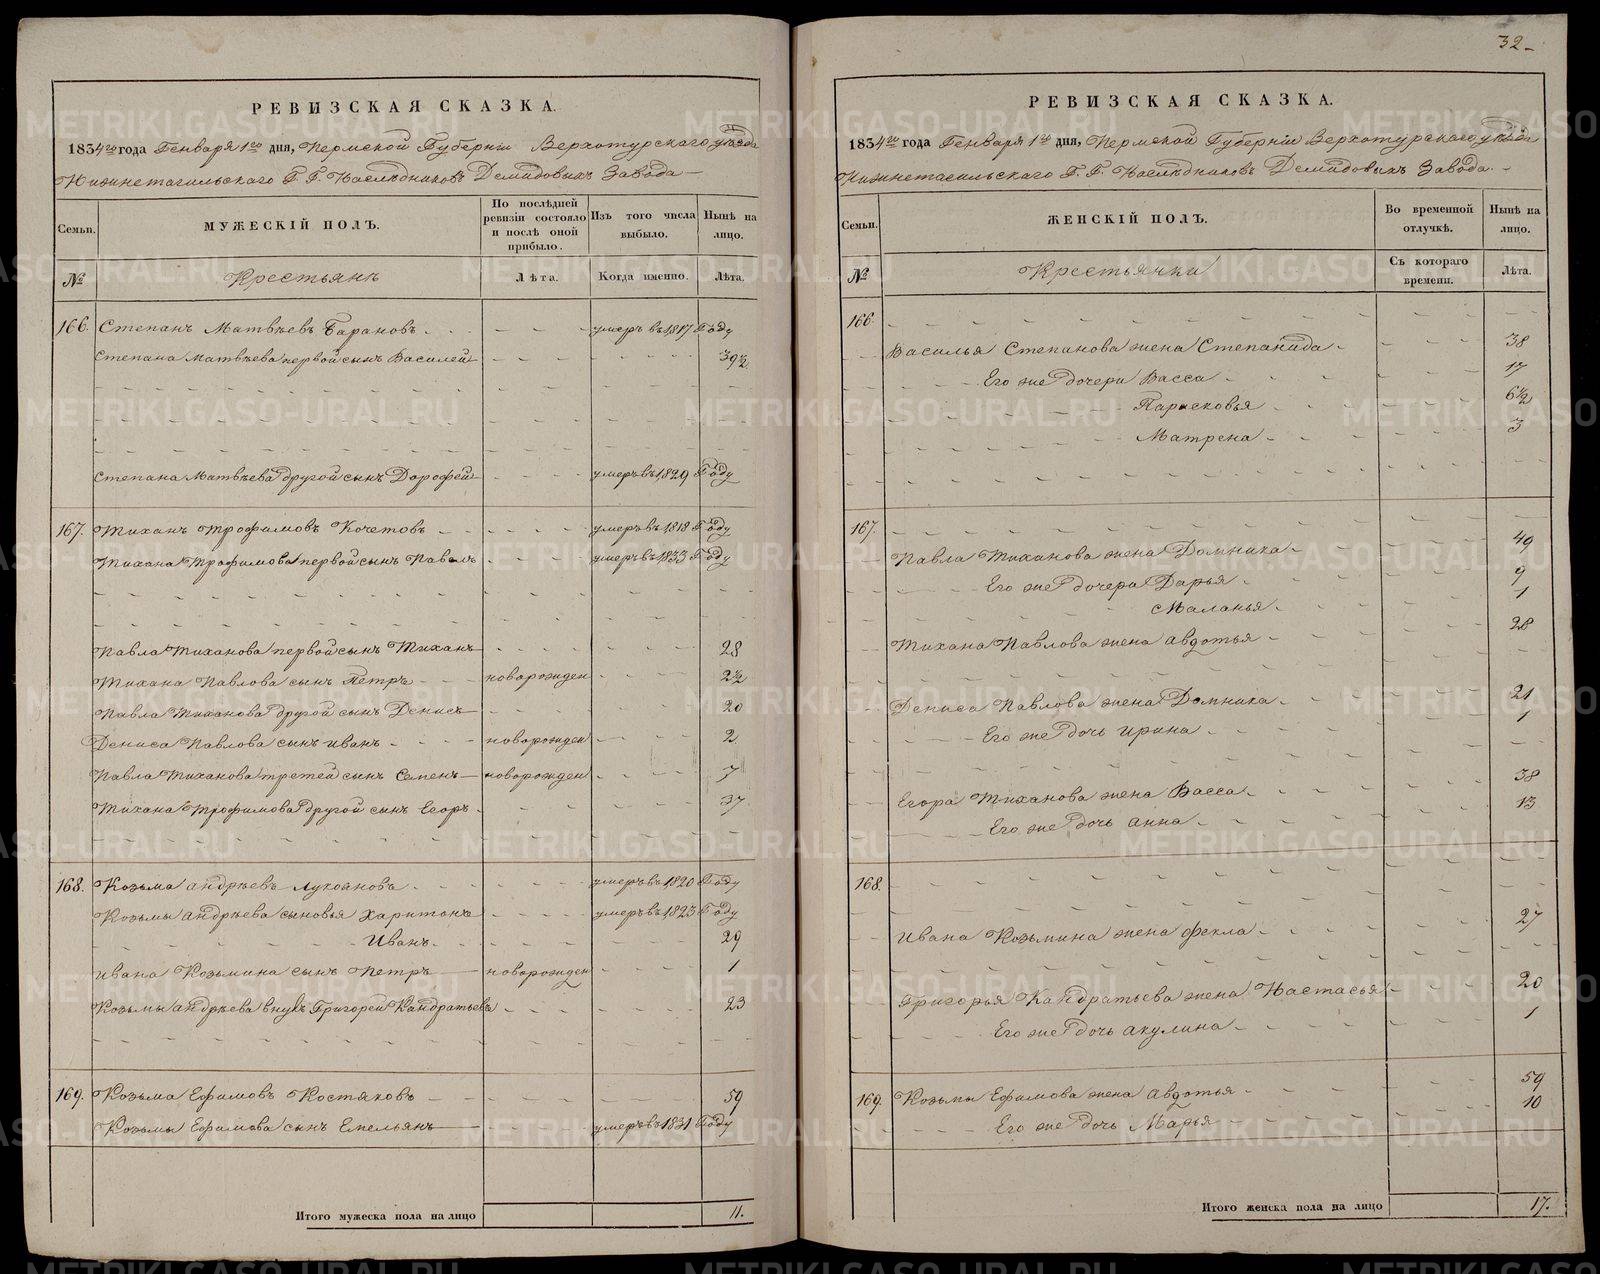 РЕВИЗСКАЯ СКАЗКА.
1834го года Генваря 1го дня, Пермской Губернiи Верхотурскаго уѣзда
Нижнетагильскаго Г. Г. Наслѣдниковъ Демидовыхъ Завода
Семьи.
МУЖЕСКIЙ ПОЛЪ.
По послѣдней ревизiи состояло и послѣ оной прибыло.
Изъ того числа выбыло.
Нынѣ на лицо.
№
Крестьянъ
Лѣта.
Когда именно.
Лѣта.
166. Степанъ Матвѣевъ Барановъ умеръ въ 1817 Году
Степана Матвѣева первой сынъ Василей 39½
Степана Матвѣева другой сынъ Дорофей умеръ въ 1829 Году
167. Тиханъ Трофимовъ Кочетовъ умеръ въ 1818 Году
Тихана Трофимова первой сынъ Павелъ умеръ въ 1833 Году
Павла Тиханова первой сынъ Тиханъ 28
Тихана Павлова сынъ Петръ новорожден 2½
Павла Тиханова другой сынъ Денисъ 20
Дениса Павлова сынъ Иванъ новорожден 2
Павла Тиханова третей сынъ Семенъ новорожден 7
Тихана Трофимова другой сынъ Егоръ 37
168. Козьма Андрѣевъ Лукояновъ умеръ въ 1820 Году
Козьмы Андрѣева сыновья Харитонъ умеръ въ 1823 Году
Иванъ 29
Ивана Козьмина сынъ Петръ новорожден 1
Козьмы Андрѣева внукъ Григорей Кандратьевъ 23
169. Козьма Ефимовъ Костяковъ 59
Козьмы Ефимова сынъ Емельянъ умеръ въ 1831 Году
Итого мужеска пола на лицо 11.
32
РЕВИЗСКАЯ СКАЗКА.
1834го года Генваря 1го дня, Пермской Губернiи Верхотурскаго уѣзда
Нижнетагильскаго Г. Г. Наслѣдниковъ Демидовыхъ Завода
Семьи.
ЖЕНСКIЙ ПОЛЪ.
Во временной отлучкѣ.
Нынѣ на лицо.
№
Крестьянки
Съ котораго времени.
Лѣта.
166.
Василья Степанова жена Степанида 38
Его же дочери Васса 17
Парасковья 6½
Матрена 3
167.
Павла Тиханова жена Домника 49
Его же дочери Дарья 9
Маланья 1
Тихана Павлова жена Авдотья 28
Дениса Павлова жена Домника 21
Его же дочь Ирина 1
Егора Тиханова жена Васса 38
Его же дочь Анна 13
168.
Ивана Козьмина жена Фекла 27
Григорья Кандратьева жена Настасья 20
Его же дочь Акулина 1
169. Козьмы Ефимова жена Авдотья 59
Его же дочь Марья 10
Итого женска пола на лицо 17.
METRIKI.GASO-URAL.RU